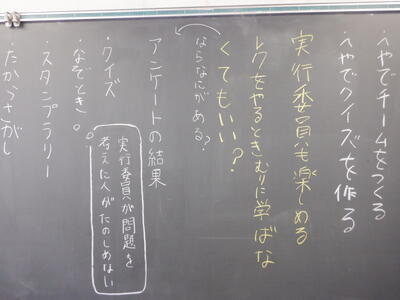 ・へやでチームをつくる
・へやでクイズを作る
実行委員も楽しめる
レクをやるときむりに学ばな
くてもいい?
ならなにがある?
アンケートの結果
・クイズ
・なぞとき
実行委員が問題を
考えた人がたのしめない
・スタンプラリー
・たからさがし